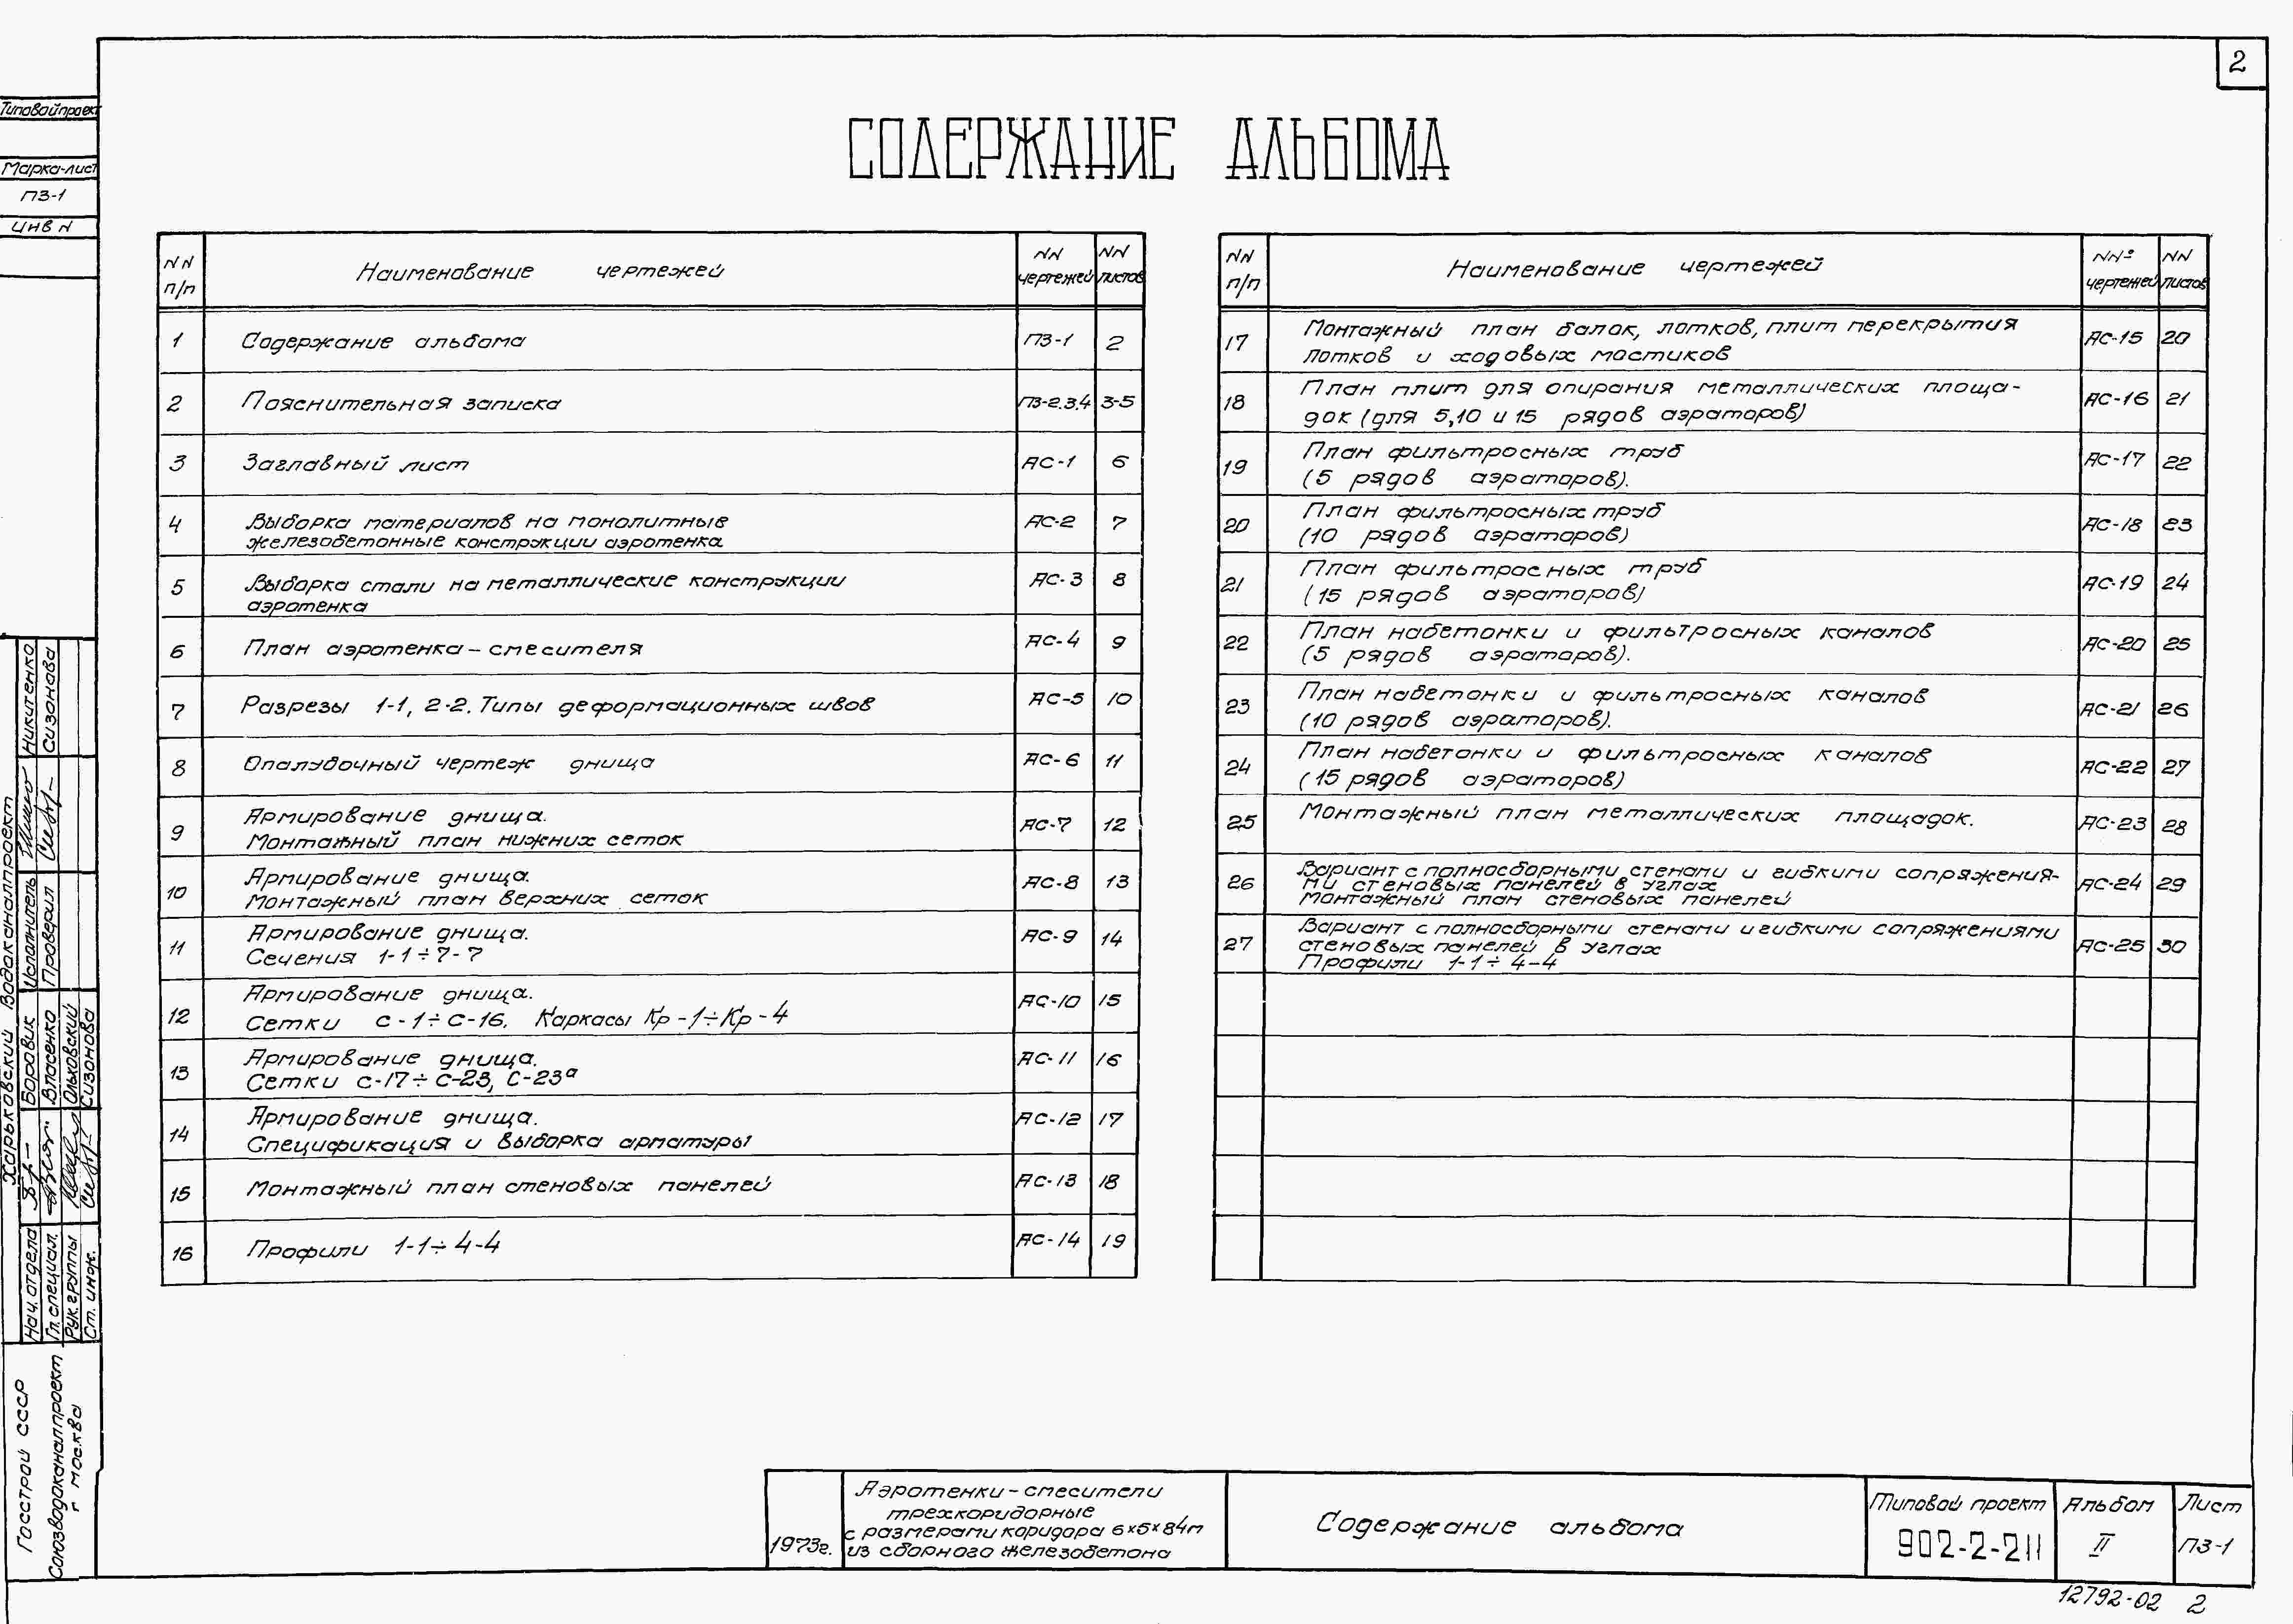 2
Типовой проект
Марка-лист
ПЗ-1
Инв N
СОДЕРЖАНИЕ АЛЬБОМА
NN п/п Наименование чертежей NN чертежей NN листов
1 Содержание альбома ПЗ-1 2
2 Пояснительная записка ПЗ-2.3.4 3-5
3 Заглавный лист АС-1 6
4 Выборка материалов на монолитные АС-2 7
железобетонные конструкции аэротенка
5 Выборка стали на металлические конструкции АС-3 8
аэротенка
6 План аэротенка-смесителя АС-4 9
7 Разрезы 1-1, 2-2. Типы деформационных швов АС-5 10
8 Опалубочный чертеж днища АС-6 11
9 Армирование днища. АС-7 12
Монтажный план нижних сеток
10 Армирование днища. АС-8 13
Монтажный план верхних сеток
11 Армирование днища. АС-9 14
Сечения 1-1÷7-7
12 Армирование днища. АС-10 15
Сетки С-1÷С-16. Каркасы Кр-1÷Кр-4
13 Армирование днища. АС-11 16
Сетки С-17÷С-23, С-23а
14 Армирование днища. АС-12 17
Спецификация и выборка арматуры
15 Монтажный план стеновых панелей АС-13 18
16 Профили 1-1÷4-4 АС-14 19
NN п/п Наименование чертежей NNº чертежей NN листов
17 Монтажный план балок, лотков, плит перекрытия АС-15 20
лотков и ходовых мостиков
18 План плит для опирания металлических площа- АС-16 21
док (для 5,10 и 15 рядов аэраторов)
19 План фильтросных труб АС-17 22
(5 рядов аэраторов).
20 План фильтросных труб АС-18 23
(10 рядов аэраторов)
21 План фильтросных труб АС-19 24
(15 рядов аэраторов)
22 План набетонки и фильтросных каналов АС-20 25
(5 рядов аэраторов).
23 План набетонки и фильтросных каналов АС-21 26
(10 рядов аэраторов).
24 План набетонки и фильтросных каналов АС-22 27
(15 рядов аэраторов)
25 Монтажный план металлических площадок. АС-23 28
26 Вариант с полносборными стенами и гибкими сопряжения- АС-24 29
ми стеновых панелей в углах
Монтажный план стеновых панелей
27 Вариант с полносборными стенами и гибкими сопряжениями АС-25 30
стеновых панелей в углах
Профили 1-1÷4-4
Харьковский Водоканалпроект
Исполнитель Никитенко
Проверил Сизонова
Нач. отдела Боровик
Гл. специал. Власенко
Рук. группы Ольховский
Ст. инж. Сизонова
Госстрой СССР
Союзводоканалпроект
г Москва
1973г.
Аэротенки-смесители
трехкоридорные
с размерами коридора 6×5×84м
из сборного железобетона
Содержание альбома
Типовой проект
902-2-211
Альбом
II
Лист
ПЗ-1
12792-02 2